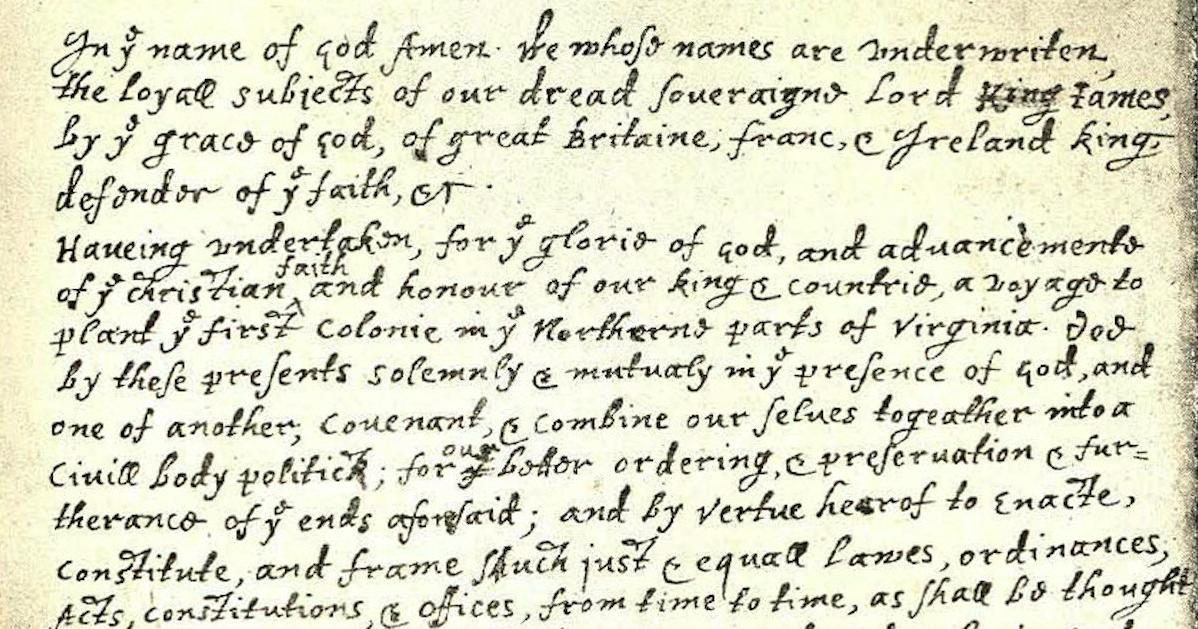 In yͤ name of god Amen· We whose names are vnderwriten,
the loyall subjects of our dread soveraigne Lord King Iames,
by yͤ grace of god, of great Britaine, franc, & Ireland king,
defender of yͤ faith, &c·
Haveing vndertaken, for yͤ glorie of god, and advancemente
of yͤ christian faith and honour of our king & countrie, a voyage to
plant yͤ first colonie in yͤ Northerne parts of Virginia· Doe
by these presents solemnly & mutualy in yͤ presence of god, and
one of another, covenant, & combine our selves togeather into a
Civill body politick; for our better ordering, & preservation & fur=
therance of yͤ ends aforesaid; and by vertue hearof to Enacte,
constitute, and frame shuch just & equall Lawes, ordinances,
Acts, constitutions, & offices, from time to time, as shall be thought